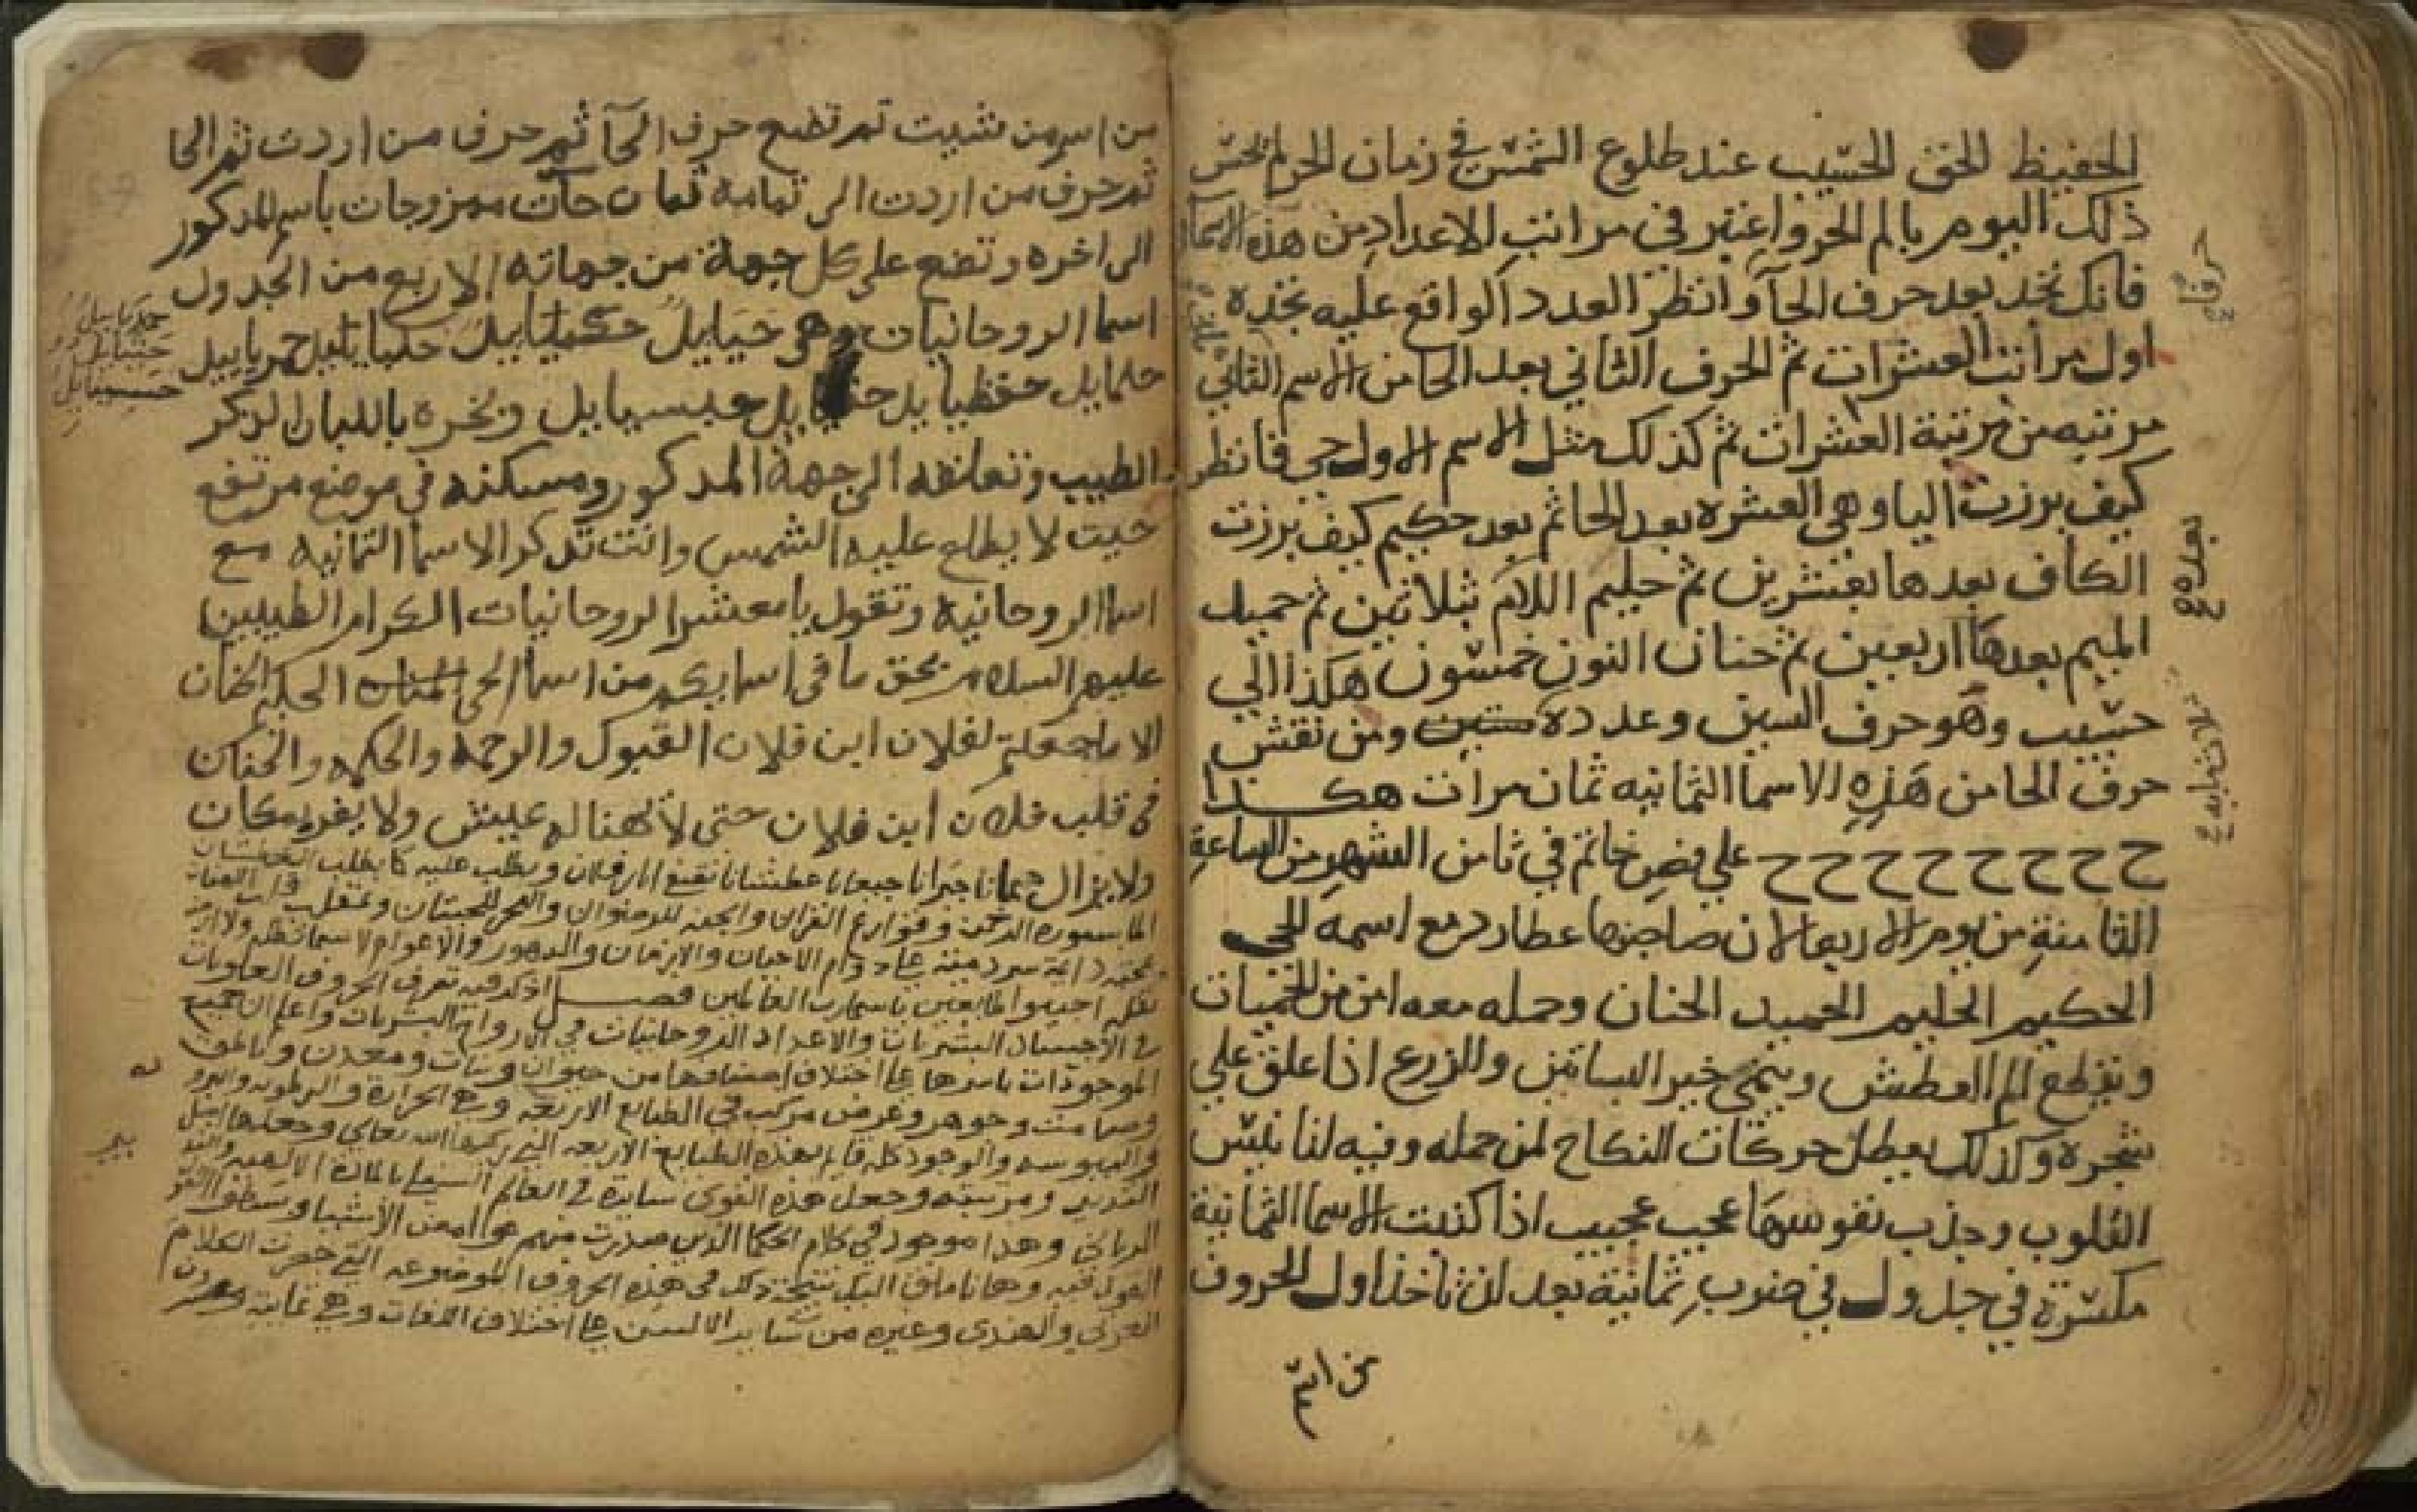 الحفيظ الحق الحسيب عند طلوع الشمس في زمان الحر لم يحس
ذلك اليوم بالم الحر واعتبر في مراتب الاعداد من هذه الاسما
فانك تجد بعد حرف الحآ وانظر العدد الواقع عليه تجده
اول مراتب العشرات ثم الحرف الثاني بعد الحا من الاسم الثاني
مرتبه من مرتبة العشرات ثم كذلك مثل الاسم الاول حي فانظر
كيف برزت اليا وهي العشره بعد الحا ثم بعد حكيم كيف برزت
الكاف بعدها بعشرين ثم حليم اللام ثلاثين ثم حميد
الميم بعدها اربعين ثم حنان النون خمسون هكذا الي
حسيب وهو حرف السين وعدده ستين ومن نقش
حرف الحا من هذه الاسما الثمانيه ثمان مرات هكذا
ح ح ح ح ح ح ح ح علي فص خاتم في ثامن الشهر من الساعة
الثامنة من يوم الاربعا لان صاحبها عطارد مع اسمه الحي
الحكيم الحليم الحميد الحنان وحمله معه امن من الحميات
ويقطع الم العطش وينمي خير البساتين والزرع اذا علق علي
شجره وكذلك يبطل حركات النكاح لمن حمله وفيه لتانيس
القلوب وجذب نفوسها عجب عجيب اذا كتبت الاسما الثمانية
مكسرة في جدول في ضروب ثمانية بعد ان تاخذ اول الحروف
من اسم
حرف ع
بعده ع
من اسم من شيت ثم تضع حرف الحآ ثم حرف من اردت ثم الحا
ثم حرف من اردت الى تمامه ثمان حآت ممزوجات باسم المذكور
الى اخره وتضع على كل جهة من جهاته الاربع من الجدول
اسما الروحانيات وهي حيَايل حكيايل حليايل حميايل
حلمايل حفظيايل حسيبايل وبخره باللبان الذكر
الطيب وتعلقه الى جهة المذكور ومسكنه في موضع مرتفع
حيث لا يطلع عليه الشمس وانت تذكر الاسما الثمانيه مع
اسما الروحانيه وتقول يا معشر الروحانيات الكرام الطيبين
عليهم السلام بحق ما في اسمايكم من اسما الحي المنان الحكيم الحنان
الا ما جعلتم لفلان ابن فلان القبول والرحمه والحكمه والحنان
في قلب فلان ابن فلان حتى لا يهنا له عيش ولا يقر به مكان
ولا يزال حيمانا حيرانا جيعانا عطشانا
دايمة سرمدية علي دوام الاحيان والازمان والدهور والاعوام
اجيبوا طايعين باسما رب العالمين فصل اذكر فيه تعرف الحروف العلويات
في الاجساد البشريات والاعداد الروحانيات في الارواح البشريات واعلم ان جميع
الموجودات باسرها علي اختلاف اصنافها من حيوان ونبات ومعدن وناطق
وصامت وجوهر وعرض مركب في الطبايع الاربعه وهي الحرارة والرطوبه والبرو
واليبوسه والوجود كله قايم بهذه الطبايع الاربعه التي ركبها الله تعالي وجعلها اصل
التدبير ومرتبته وجعل هذه القوى سايرة في العالم السفلي بالمادة الالهيه
الرباني وهذا موجود في كلام الحكما الذين صدرت منهم
القول فيه وها انا ملق اليك نتيجة ذلك في هذه الحروف الموضوعه التي حصرت الكلام
العربي والهندى وغيره من ساير الالسن علي اختلاف اللغات وهي ثمانية وعشرون